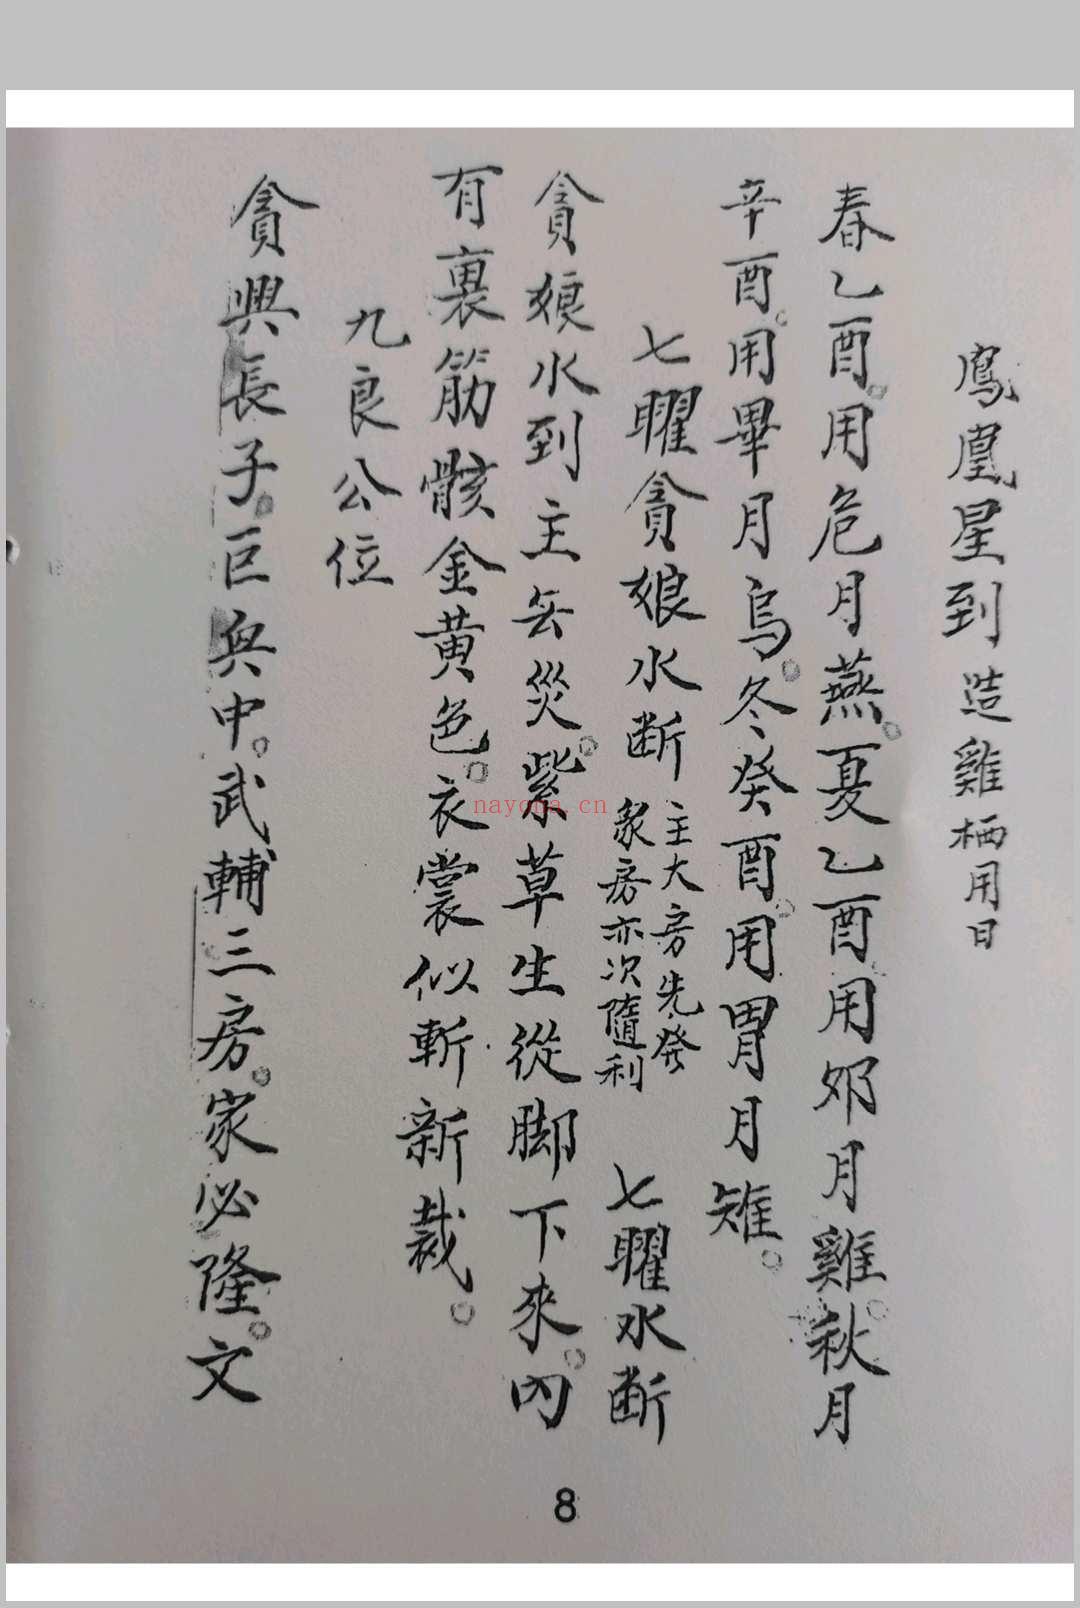 鳳凰星到造雞栖用日
春乙酉。用危月燕。夏乙酉用郊月雞秋月
辛酉。用畢月烏。冬癸酉。用胃月雉。
七曜貪娘水断 主大房先發
衆房亦次隨利 七曜水断
貪娘水到主無災。紫草生從脚下來。內
有裏筋骸金黃色。衣裳似斬新裁。
九良公位
貪興長子。巨興中。武輔三房。家必隆。文
nayona.cn
8